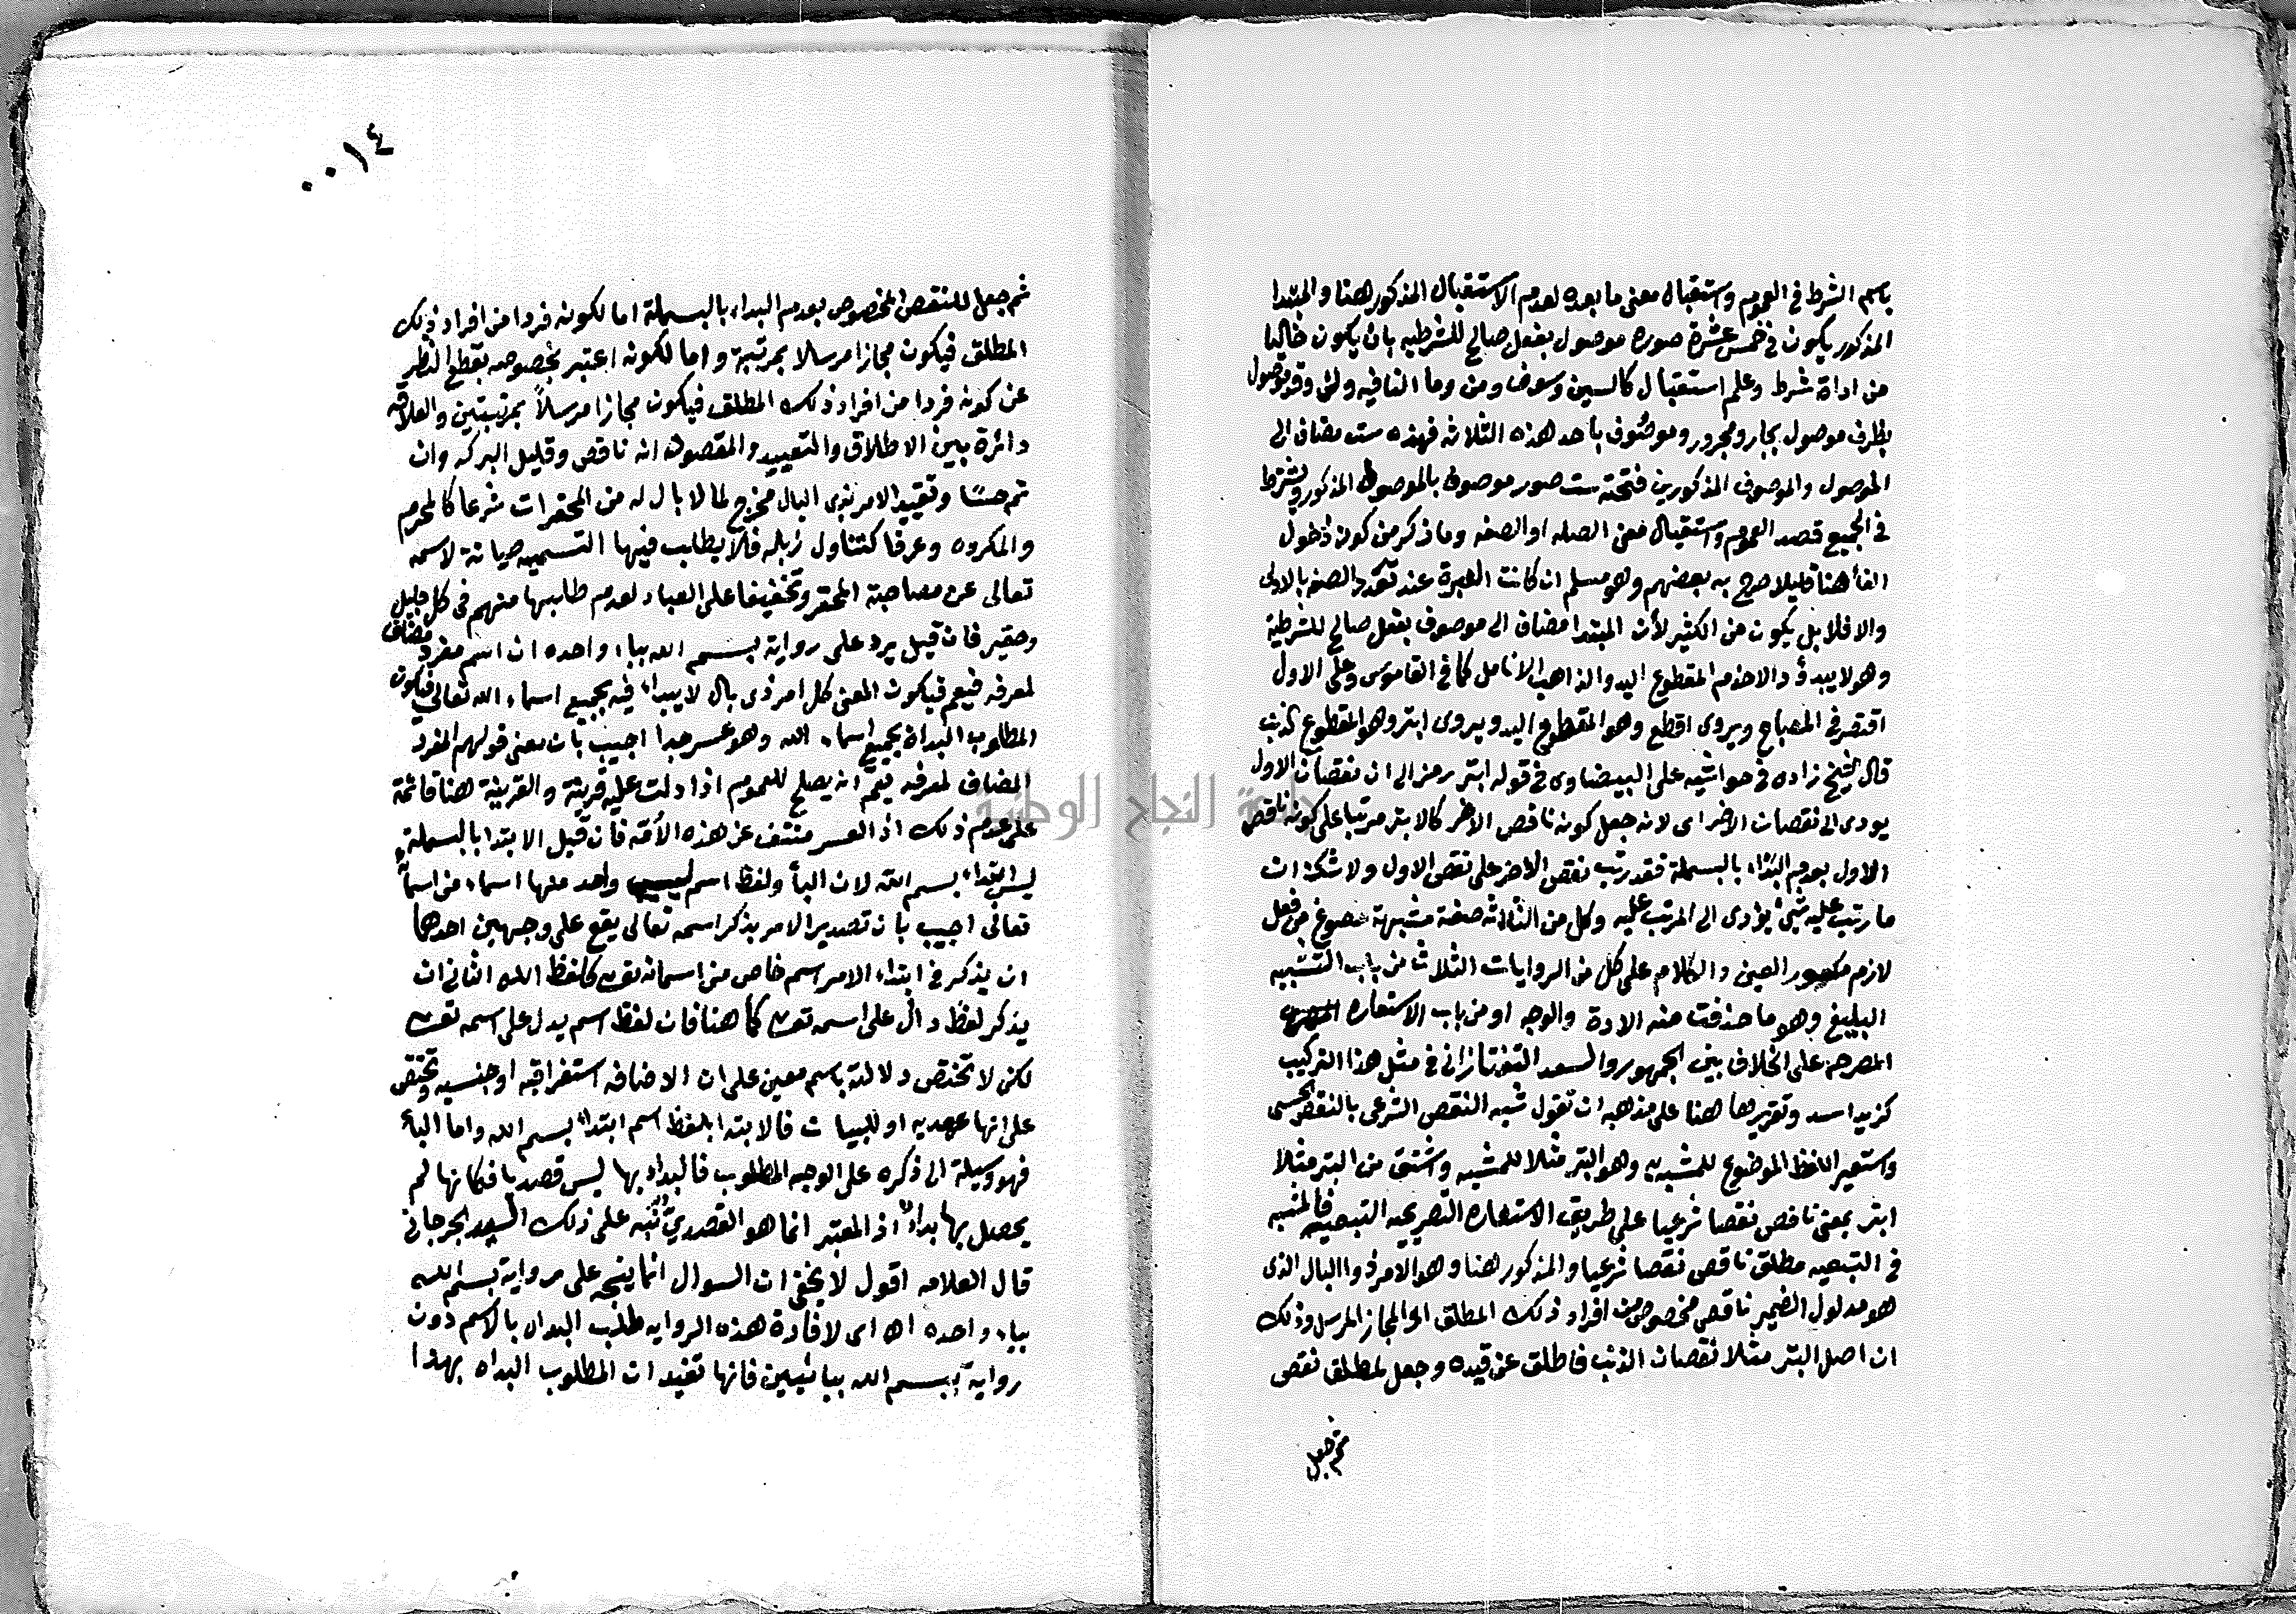 باسم الشرط في العموم واستقبال معنى ما بعده لعدم الاستقبال المذكور هنا والمبتدا
المذكور يكون في خمس عشرة صورة موصول بفعل صالح للشرطيه بان يكون خاليا
من اداة شرط وعلم استقبال كالسين وسوف ومن وما النافيه ولن وقد وموصول
بظرف موصول بجار ومجرور وموصوف باحد هذه الثلاثه فهذه ست مضاف الى
الموصول والموصوف المذكورين فتحته ست صور موصوف بالموصول المذكور ويشترط
في الجميع قصد العموم واستقبال معنى الصله او الصفه وما ذكر من كون دخول
الفا هنا قليلا صرح به بعضهم وهو مسلم ان كانت العبرة عند تعدد الصفه بالاولى
والا فلا بل يكون من الكثير لأن المبتدا مضاف الى موصوف بفعل صالح للشرطية
وهو لا يبدؤ والاجذم المقطوع اليد والذاهب الانامل كما في القاموس وعلى الاول
اقتصر في المصباح ويروى اقطع وهو المقطوع اليد ويروى ابتر وهو المقطوع الذنب
قال شيخ زاده في حواشيه على البيضاوى في قوله ابتر رمز الى ان نقصان الاول
يودى الى نقصان الاخر اى لانه جعل كونه ناقص الاخر كالابتر مرتبا على كونه ناقص
الاول بعدم البداء بالبسملة فقد رتب نقص الاخر على نقص الاول ولا شك ان
ما رتب عليه شئ يؤدى الى المرتب عليه وكل من الثلاثه صفة مشبهة مصوغ من فعل
لازم مكسور العين والكلام على كل من الروايات الثلاث من باب التشبيه
البليغ وهو ما حذفت منه الاداة والوجه او من باب الاستعاره
المصرحه على الخلاف بين الجمهور والسعد التفتازانى في مثل هذا التركيب
كزيد اسد وتقريرها هنا على مذهبه ان تقول شبه النقص الشرعى بالنقص الحسى
واستعير اللفظ الموضوع للمشبه به وهو البتر مثلا للمشبه واشتق من البتر مثلا
ابتر بمعنى ناقص نقصا شرعيا على طريق الاستعاره التصريحيه التبعيه فالمشبه
في التبعيه مطلق ناقص نقصا شرعيا والمذكور هنا وهو الامر ذو البال الذى
هو مدلول الضمير ناقص مخصوص من افراد ذلك المطلق او المجاز المرسل وذلك
ان اصل البتر مثلا نقصان الذنب فاطلق عن قيده وجعل لمطلق نقص
ثم جعل
٠٠١٤
ثم جعل للنقص المخصوص بعدم البداء بالبسملة اما لكونه فردا من افراد ذلك
المطلق فيكون مجازا مرسلا بمرتبة واما لكونه اعتبر بخصوصه بقطع النظر
عن كونه فردا من افراد ذلك المطلق فيكون مجازا مرسلاً بمرتبتين والعلاقه
دائرة بين الاطلاق والتقييد والمقصود انه ناقص وقليل البركه وان
تم حسًا وتقييد الامر بذى البال مخرج لما لا بال له من المحقرات شرعا كالمحرم
والمكروه وعرفا كتناول زباله فلا يطلب فيها التسميه صيانة لاسمه
تعالى عن مصاحبة المحقر وتخفيفا على العباد لعدم طلبها منهم في كل جليل
وحقير فان قيل يرد على رواية بسم الله بباء واحده ان اسم مفرد مضاف
لمعرفه فيعم فيكون المعنى كل امر ذى بال لا يبداء فيه بجميع اسماء الله تعالى فيكون
المطلوب البداة بجميع اسماء الله وهو عسر جدا اجيب بان معنى قولهم المفرد
المضاف لمعرفه يعم انه يصلح للعموم اذا دلت عليه قرينة والقرينة هنا قائمة
على عدم ذلك اذ العسر منتف عن هذه الأمه فان قيل الابتدا بالبسملة
ليس ابتداء بسم الله لان البأ ولفظ اسم ليس واحد منها اسماء من اسمأ
تعالى اجيب بان تصدير الامر بذكر اسمه تعالى يقع على وجهين احدهما
ان يذكر في ابتداء الامر اسم خاص من اسمائه تعالى كلفظ الله الثانى ان
يذكر لفظ دال على اسمه تعالى كما هنا فان لفظ اسم يدل على اسمه تعالى
لكن لا تختص دلالته باسم معين على ان الاضافه استغراقيه او جنسيه وتختص
على انها عهديه او للبيان فالابتدا بلفظ اسم ابتداء بسم الله واما البأ
فهو وسيلة الى ذكره على الوجه المطلوب فالبداء بها ليس قصديا فكانها لم
يحصل بها بداء اذ المعتبر انما هو القصدي نُبّه على ذلك السيد الجرجانى
قال العلامه اقول لا يخفى ان السوال انما يتجه على رواية بسم الله
بباء واحده اه اى لافادة هذه الروايه طلب البداء بالاسم دون
رواية ببسم الله ببائين فانها تفيد ان المطلوب البداه بهذا